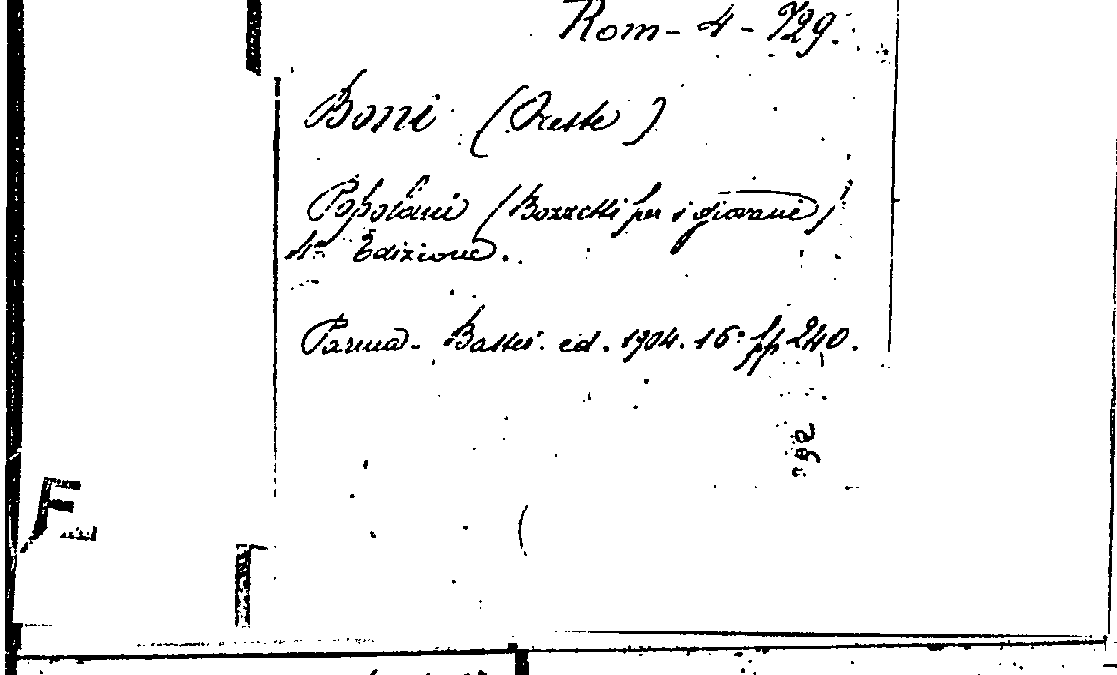 Rom - 4 - 729.
Boni (Oreste)
Popolani (Bozzetti per i giovani)
4ª Edizione.
Parma - Battei. ed. 1904. 16° pp 240.